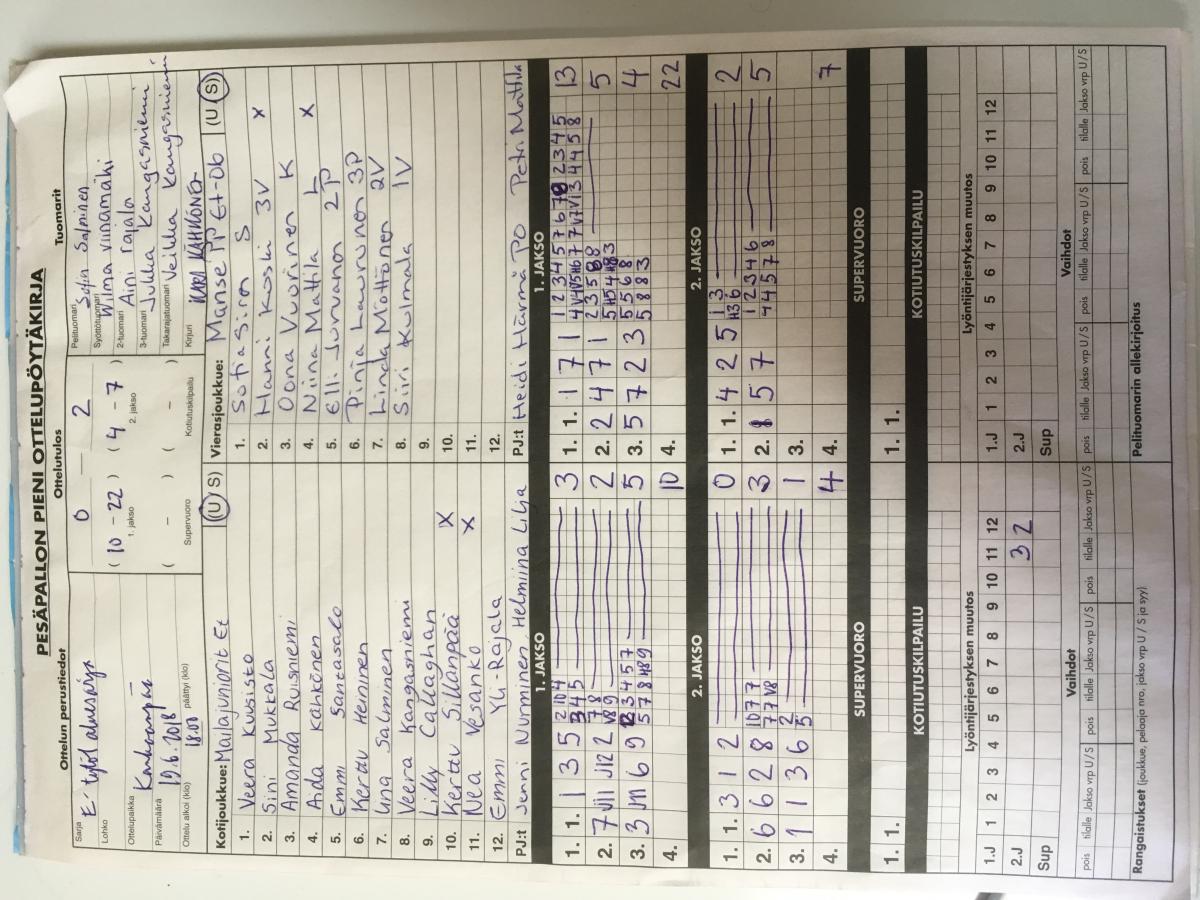 PESÄPALLON PIENI OTTELUPÖYTÄKIRJA
Ottelun perustiedot
Ottelutulos
Tuomarit
Sarja
E-tytöt
Lohko
Ottelupaikka
Päivämäärä
19.6.2018
Ottelu alkoi (klo) 18.00 päättyi (klo)
0 — 2
( 10 - 22 ) ( 4 - 7 )
1. jakso 2. jakso
( - ) ( - )
Supervuoro Kotiutuskilpailu
Pelituomari
Sofia Salminen
Syöttötuomari
Wilma Viinamäki
2-tuomari
Aini Rajala
3-tuomari
Jukka Kangasniemi
Takarajatuomari
Veikka Kangasniemi
Kirjuri
KÄHKÖNEN
Kotijoukkue: Mailajuniorit Et (U S)
1. Veera Kuusisto
2. Sini Mukkala
3. Amanda Ruisniemi
4. Aida Kähkönen
5. Emmi Santasalo
6. Kerttu Heininen
7. Una Salminen
8. Veera Kangasniemi
9. Lilly Callaghan
10. Kerttu Sillanpää X
11. Nea Vesanko X
12. Emmi Yli-Rajala
PJ:t Jenni Nurminen, Helmiina Lilja
Vierasjoukkue: Manse PP Et-06 (U S)
1. Sofia Siren S
2. Hanni Koski 3V X
3. Oona Vuorinen K
4. Niina Mattila L X
5. Elli Jurvanon 2P
6. Pinja Laurunen 3P
7. Linda Möttönen 2V
8. Siiri Kulmala 1V
9.
10.
11.
12.
PJ:t Heidi Härmä PO Petri Mattila
1. JAKSO
1. 1. 1 3 5 3
2. 7 J11 J12 2 2
3. 3 J11 6 9 5
4. 10
1. JAKSO
1. 1. 1 7 1 13
2. 2 4 7 1 5
3. 5 7 2 3 4
4. 22
2. JAKSO
1. 1. 3 1 2 0
2. 6 6 2 8 3
3. 1 1 3 6 1
4. 4
2. JAKSO
1. 1. 4 2 5 2
2. 8 5 7 5
3.
4. 7
SUPERVUORO
1. 1.
SUPERVUORO
1. 1.
KOTIUTUSKILPAILU
KOTIUTUSKILPAILU
Lyöntijärjestyksen muutos
1.J 1 2 3 4 5 6 7 8 9 10 11 12
2.J 3 2
Sup
Lyöntijärjestyksen muutos
1.J 1 2 3 4 5 6 7 8 9 10 11 12
2.J
Sup
Vaihdot
pois tilalle Jakso vrp U / S pois tilalle Jakso vrp U / S pois tilalle Jakso vrp U / S
Vaihdot
pois tilalle Jakso vrp U / S pois tilalle Jakso vrp U / S pois tilalle Jakso vrp U / S
Rangaistukset (joukkue, pelaaja nro, jakso vrp U / S ja syy)
Pelituomarin allekirjoitus